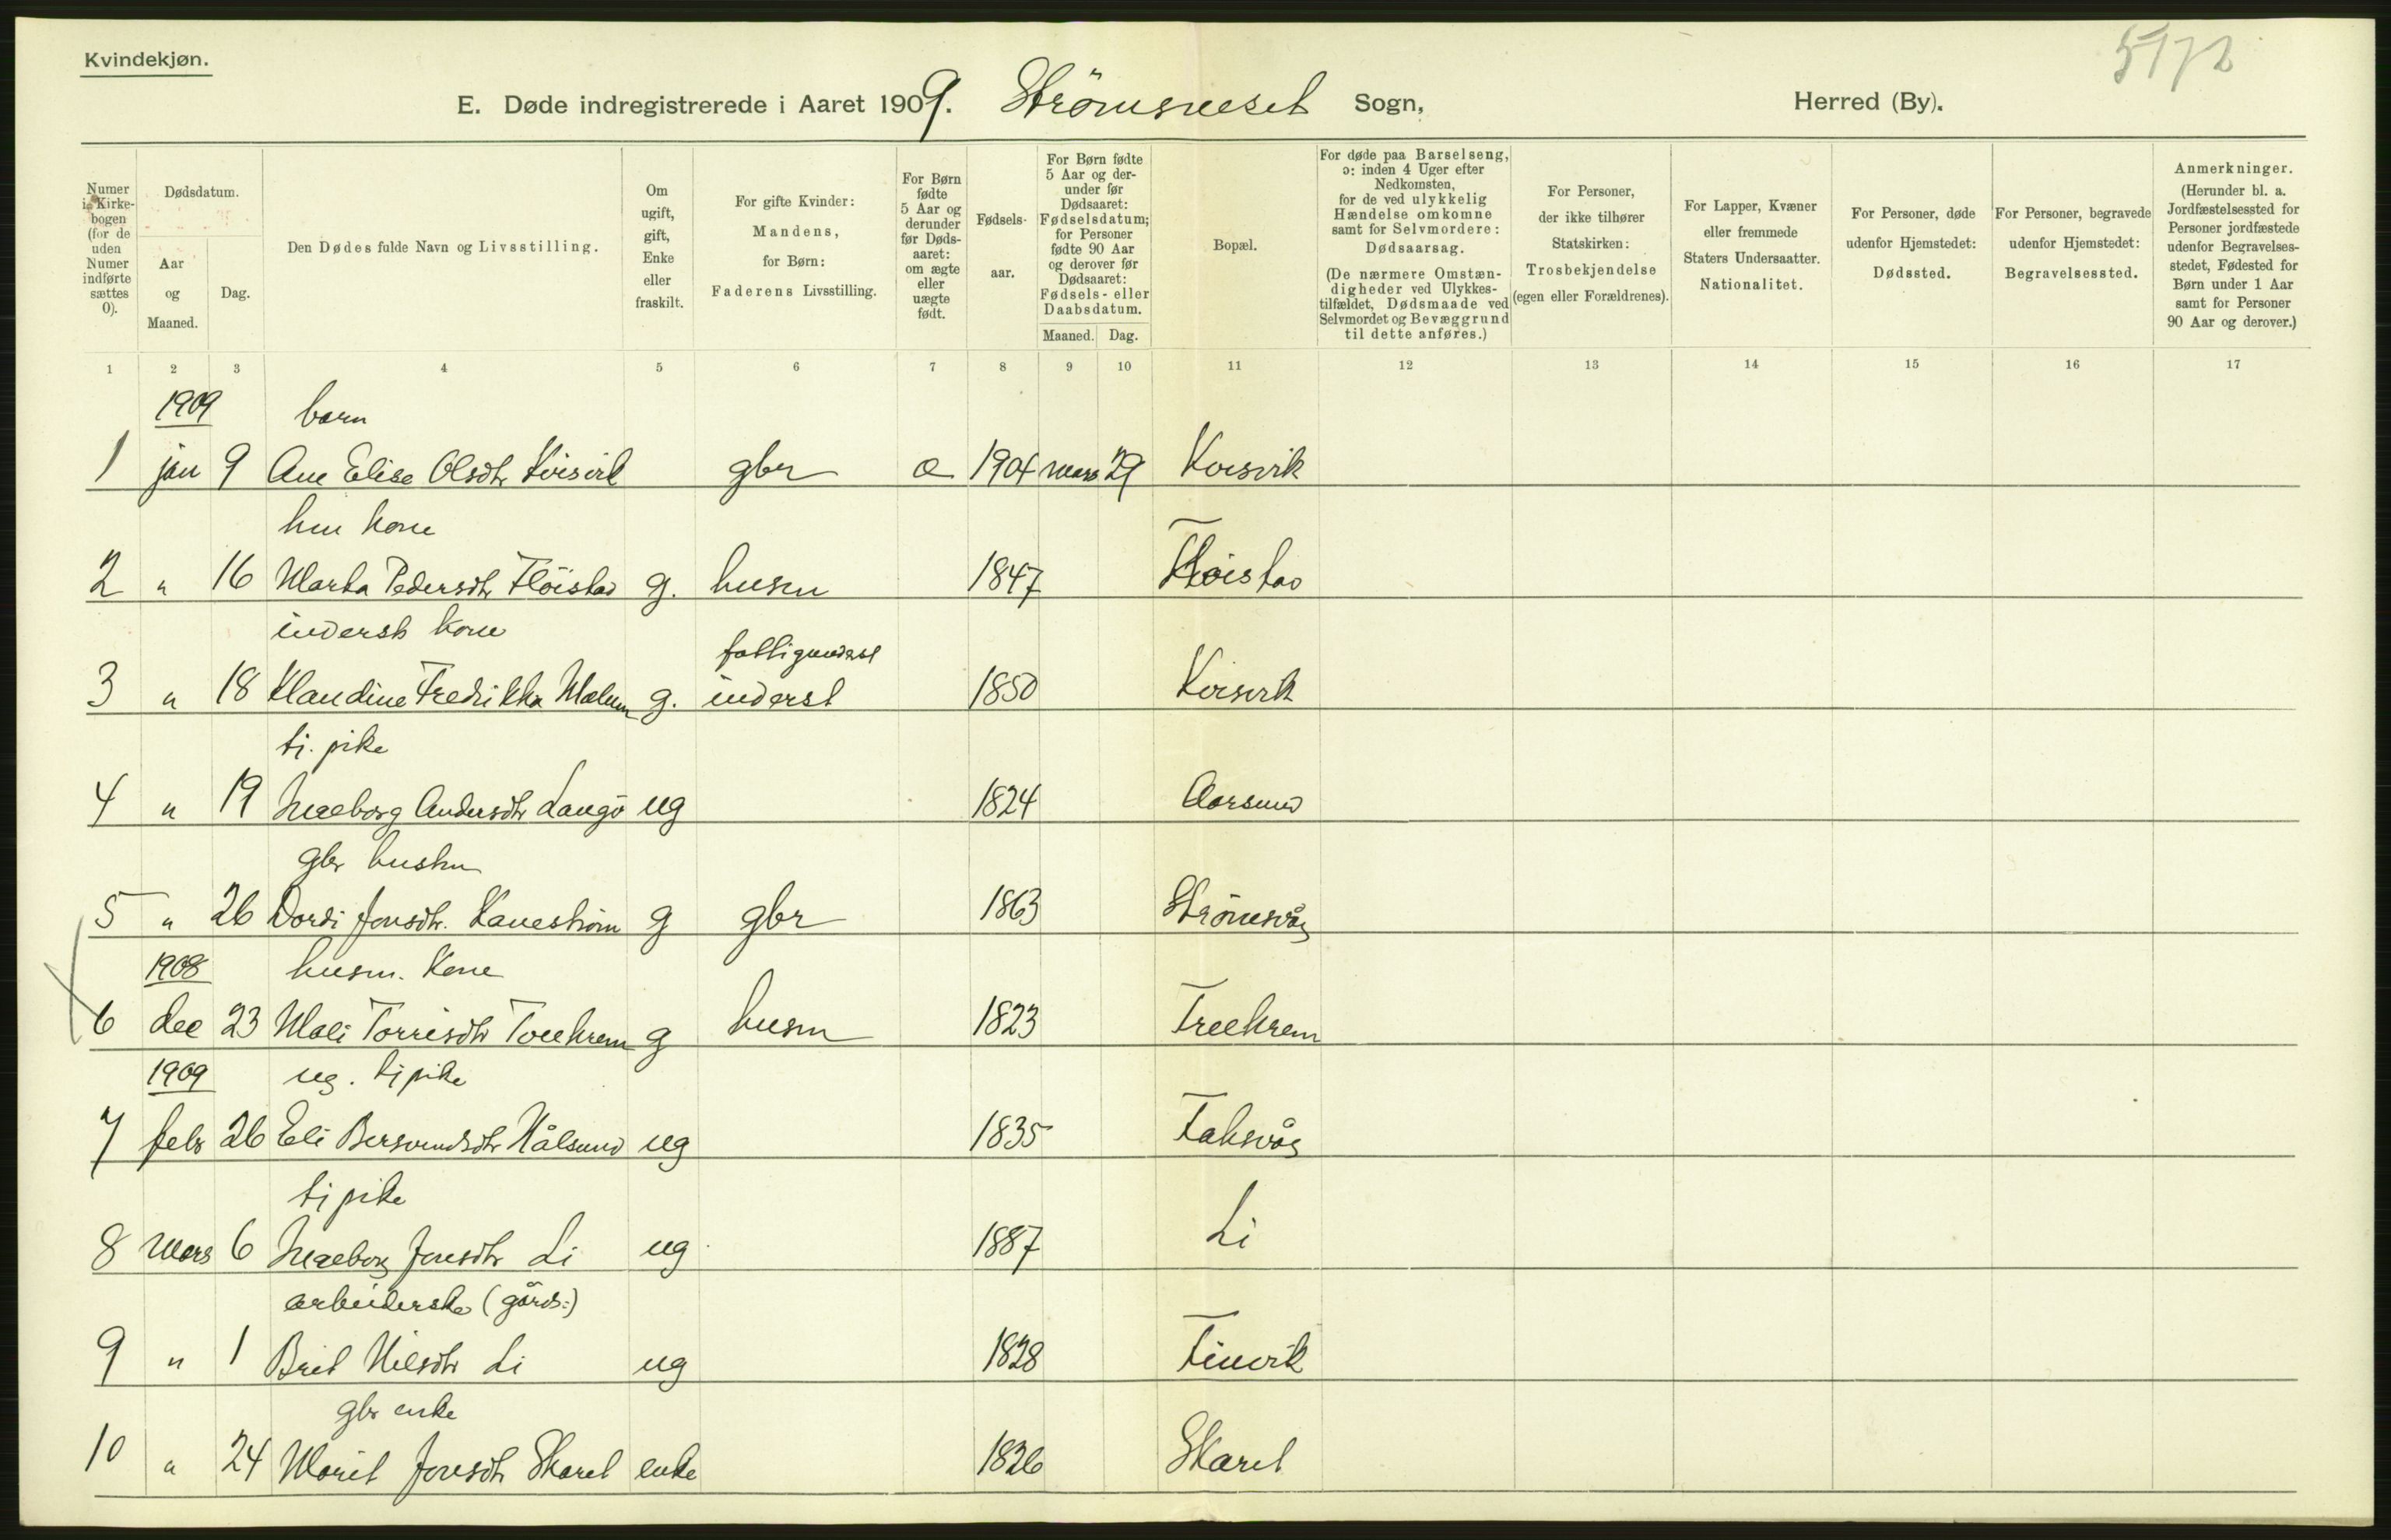 Kvindekjøn.
5172
E. Døde indregistrerede i Aaret 1909. Strömsneset Sogn, Herred (By).
Numer i Kirkebogen (for de uden Numer indførte sættes 0).
Dødsdatum.
Aar og Maaned.
Dag.
Den Dødes fulde Navn og Livsstilling.
Om ugift, gift, Enke eller fraskilt.
For gifte Kvinder: Mandens, for Børn: Faderens Livsstilling.
For Børn fødte 5 Aar og derunder før Dødsaaret: om ægte eller uægte født.
Fødselsaar.
For Børn fødte 5 Aar og derunder før Dødsaaret: Fødselsdatum; for Personer fødte 90 Aar og derover før Dødsaaret: Fødsels- eller Daabsdatum.
Maaned. Dag.
Bopæl.
For døde paa Barselseng, ɔ: inden 4 Uger efter Nedkomsten, for de ved ulykkelig Hændelse omkomne samt for Selvmordere: Dødsaarsag.
(De nærmere Omstændigheder ved Ulykkestilfældet, Dødsmaade ved Selvmordet og Bevæggrund til dette anføres.)
For Personer, der ikke tilhører Statskirken: Trosbekjendelse (egen eller Forældrenes).
For Lapper, Kvæner eller fremmede Staters Undersaatter. Nationalitet.
For Personer, døde udenfor Hjemstedet: Dødssted.
For Personer, begravede udenfor Hjemstedet: Begravelsessted.
Anmerkninger.
(Herunder bl. a. Jordfæstelsessted for Personer jordfæstede udenfor Begravelsesstedet, Fødested for Børn under 1 Aar samt for Personer 90 Aar og derover.)
1 2 3 4 5 6 7 8 9 10 11 12 13 14 15 16 17
1909 barn
1 jan 9 Ane Elise Olsdtr Kvisvik gbr 1904 mars 29 Kvisvik
kone
2 " 16 Marta Pedersdtr Flöistad g. husm 1847 Flöistad
inderst kone
3 " 18 Klaudine Fredrikka g. inderst 1850 Kvisvik
tj. pike
4 " 19 Ingeborg Andersdtr Langö ug 1824 Aarsund
gbr hustru
5 " 26 Dordi Jonsdtr. Kaneström g gbr 1863 Strömsvåg
1908 husm. kone
6 dec 23 Mali Torrisdtr g husm 1823 Treekrem
1909 ug. tj pike
7 febr 26 Eli Bersvendsdtr Hålsund ug 1835 Faksvåg
tj pike
8 mars 6 Ingeborg Jonsdtr Li ug 1887 Li
arbeiderske (gårds:)
9 " 1 Brit Nilsdtr Li ug 1828 Finvik
gbr enke
10 " 24 Marit Jonsdtr Skaret enke 1826 Skaret